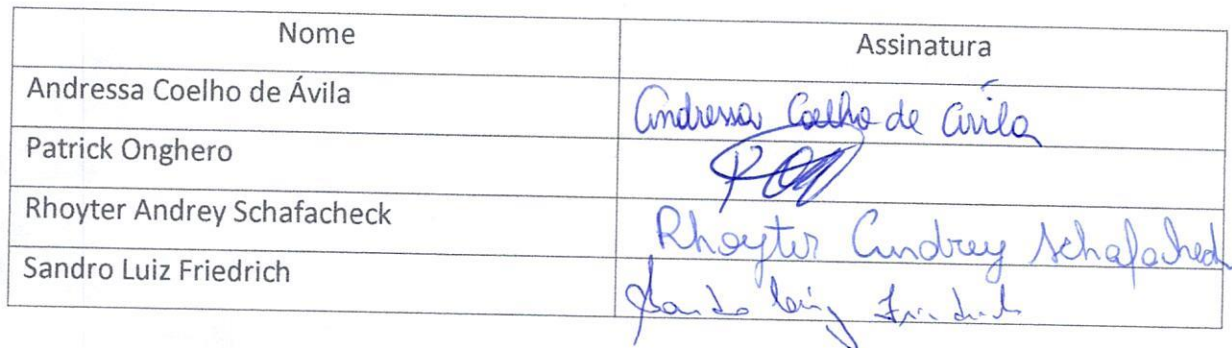 Nome Assinatura
Andressa Coelho de Ávila Andressa Coelho de Avila
Patrick Onghero
Rhoyter Andrey Schafacheck Rhoyter Andrey Schafacheck
Sandro Luiz Friedrich Sandro Luiz Friedrich